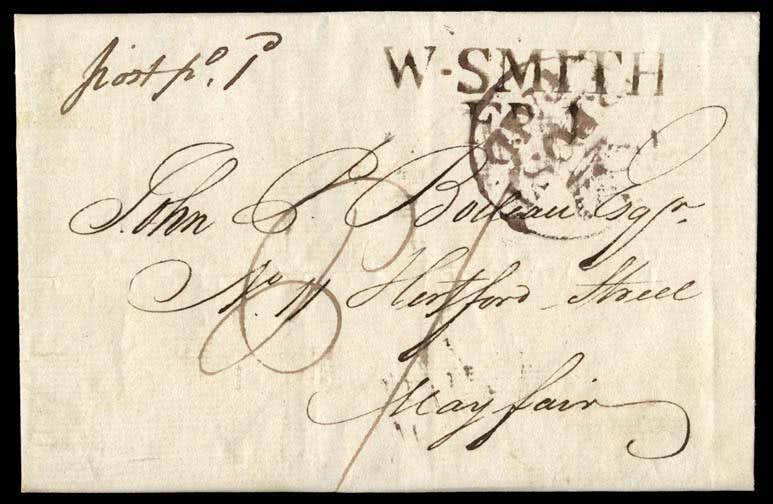 post pd. 1d
W-SMITH
John P. Boileau Esqr.
No. 11 Hertford Street
May fair